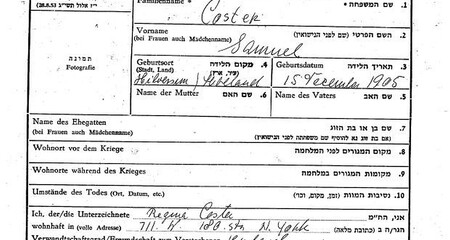 (28.8.53) י״ז אלול תשי״ג
Familienname
1. שם המשפחה*
Coster
תמונה
Fotografie
Vorname
(bei Frauen auch Mädchenname)
2. השם הפרטי (שם לפני הנישואין)
Samuel
Geburtsort
(Stadt, Land)
4. מקום הלידה
(עיר, ארץ)
Geburtsdatum
3. תאריך הלידה
Hilversum /
15 December 1905
Name der Mutter
6. שם האם
Name des Vaters
5. שם האב
Name des Ehegatten
(bei Frauen auch Mädchenname)
7. שם בן או בת הזוג
Wohnort vor dem Kriege
8. מקום המגורים לפני המלחמה
Wohnorte während des Krieges
9. מקומות המגורים במלחמה
Umstände des Todes (Ort, Datum, etc.)
10. נסיבות המוות (זמן, מקום, וכו')
Ich, der/die Unterzeichnete
Regina Coster
אני, החי״מ
wohnhaft in (volle Adresse)
711. W. 180. str. N. York
הגר/ה ב (כתובת מלאה)